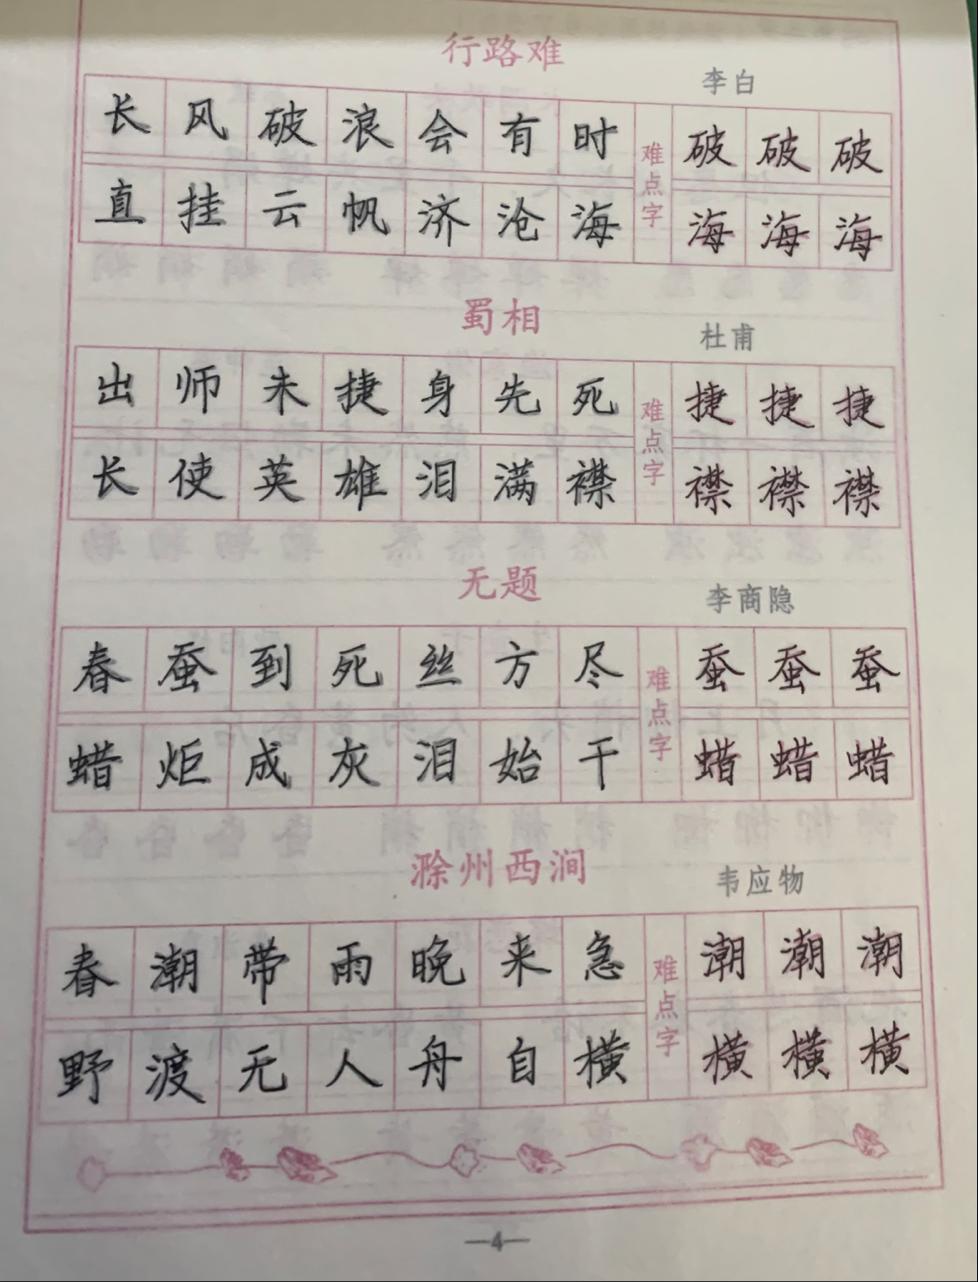 行路难
李白
长风破浪会有时
难点字
破破破
直挂云帆济沧海
海海海
蜀相
杜甫
出师未捷身先死
难点字
捷捷捷
长使英雄泪满襟
襟襟襟
无题
李商隐
春蚕到死丝方尽
难点字
蚕蚕蚕
蜡炬成灰泪始干
蜡蜡蜡
滁州西涧
韦应物
春潮带雨晚来急
难点字
潮潮潮
野渡无人舟自横
横横横
—4—